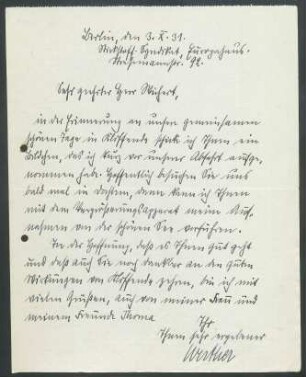 Berlin, den 3. X. 31.
Stickstoff-Syndikat, Europahaus.
Stresemannstr. 92.
Sehr geehrter Herr Wichert,
in der Erinnerung an unsere gemeinsamen
schönen Tage in Kliffende schicke ich Ihnen ein
Bildchen, das ich kurz vor unserer Abfahrt aufge-
nommen habe. Hoffentlich besuchen Sie uns
bald mal in Dahlem, dann kann ich Ihnen
mit dem Vergrößerungsapparat meine Auf-
nahmen von der schönen See vorführen.
In der Hoffnung, dass es Ihnen gut geht
und dass auch Sie noch dankbar an den guten
Wirkungen von Kliffende zehren, bin ich mit
vielen Grüßen, auch von meiner Frau und
meinem Freunde
Ihr
Ihnen sehr ergebener